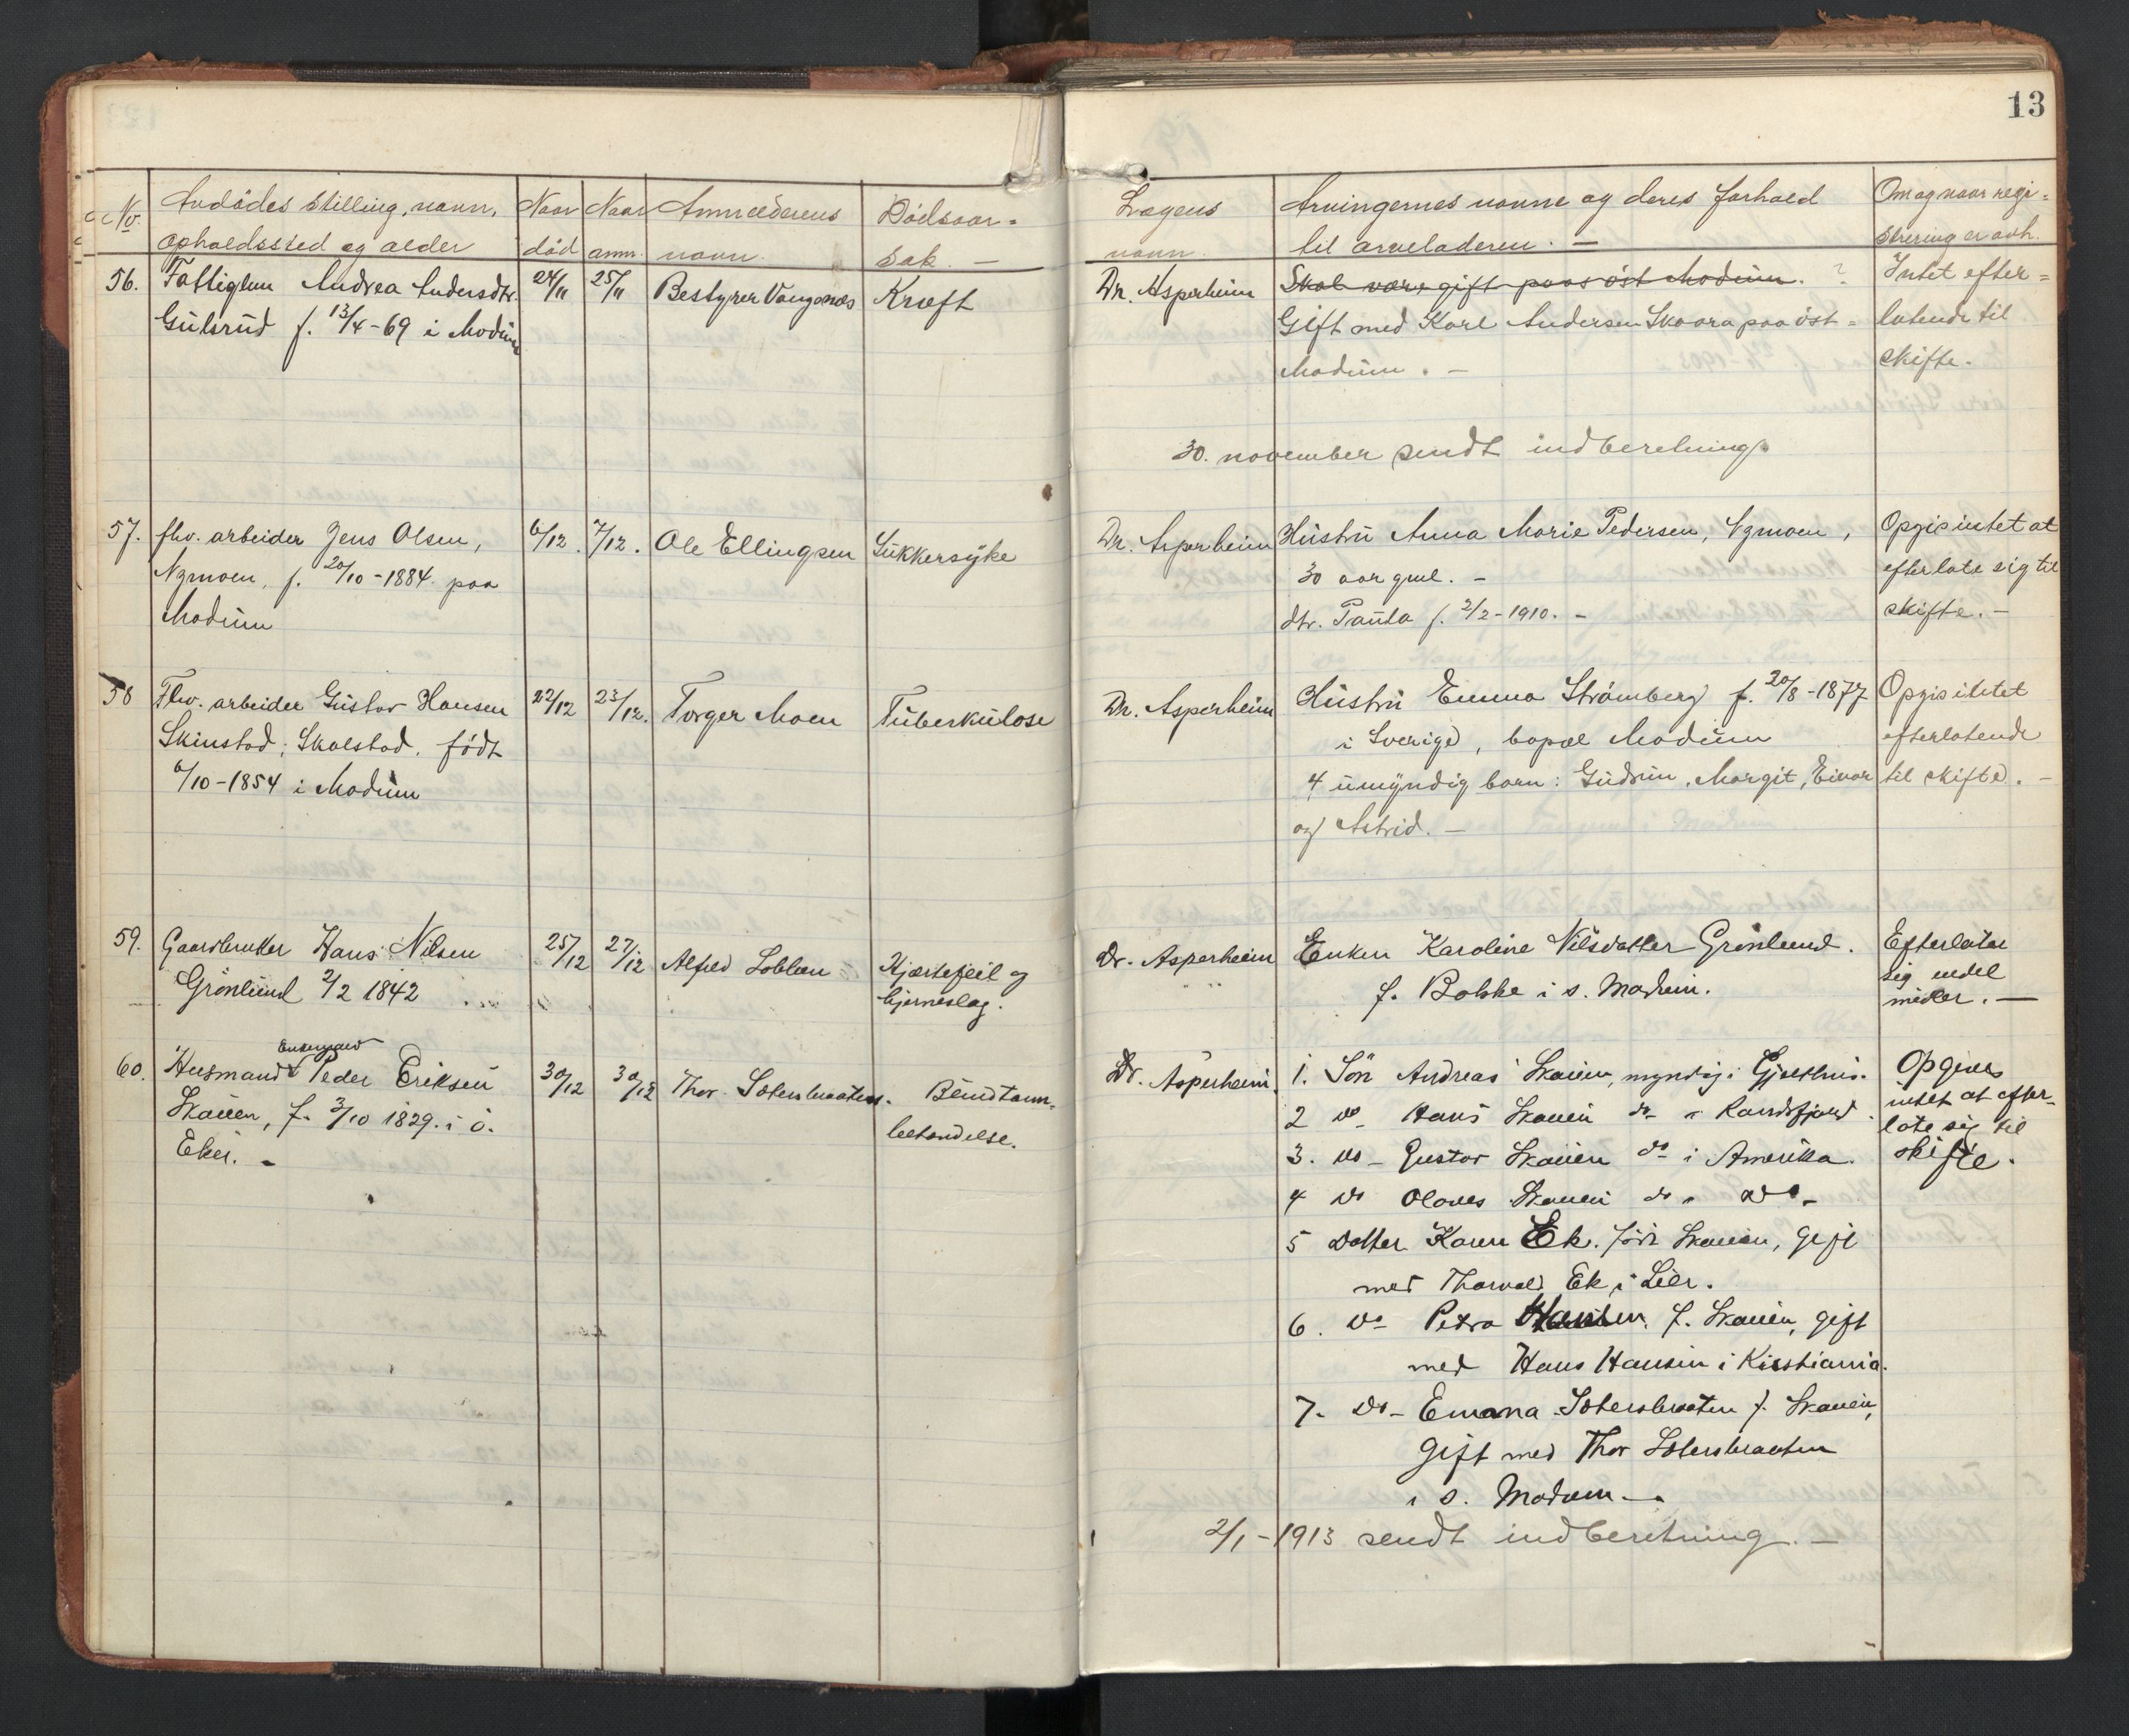 13
No.
Avdødes stilling, navn,
opholdssted og alder
Naar
død
Naar
anm.
Anmelderens
navn.
Dødsaar=
sak. —
Lægens
navn.
Arvingernes navne og deres forhold
til arveladeren. —
Om og naar regi=
strering er avh.
56.
Fattiglem Andrea Andersdtr.
Gulsrud f. 13/4-69 i Modum
24/11
25/11
Bestyrer Vangsnes
Kræft
Dr. Asperheim
Skal være gift paa øst Modum. ?
Gift med Karl Andersen Skaara paa øst=
Modum. —
Intet efter=
latende til
skifte.
30. november sendt indberetning
57.
fhv. arbeider Jens Olsen,
Nymoen, f. 20/10-1884 paa
Modum
6/12.
7/12.
Ole Ellingsen
Sukkersyke
Dr. Asperheim
Hustru Anna Marie Pedersen, Nymoen,
30 aar gml. —
dtr. Paula f. 2/2-1910. —
Opgis intet at
efterlate sig til
skifte. —
58
Fhv. arbeider Gustav Hansen
Skinstad, Skalstad, født
6/10-1854 i Modum
22/12
23/12.
Torger Moen
Tuberkulose
Dr. Asperheim
Hustru Emma Strömberg f. 20/8-1877
i Sverige, bopæl Modum
4 umyndig barn: Gudrun, Margit, Einar
og Astrid. —
Opgis intet
efterlatende
til skifte. —
59.
Gaardbruker Hans Nilsen
Grönlund 2/2 1842
25/12
27/12
Alfred Loblien
Hjærtefeil og
hjerneslag.
Dr. Asperheim
Enken Karoline Nilsdatter Grönlund.
f. Bakke i s. Modum.
Efterlater
sig endel
midler. —
60.
Enkemand
Husmand Peder Eriksen
Skauen, f. 3/10 1829. i ö.
Eker. —
30/12
30/12
Thor Sotersbraaten.
Beindtann-
behandelse.
Dr. Asperheim.
1. Sön Andreas Skauen, myndig i Gjethus.
2 do Hans Skauen do " Randsfjord.
3. do — Gustav Skauen do i Amerika.
4 do Olaves Skauen do " do —
5 Datter Karen Ek. född Skauen, gift
med Thorvald Ek i Lier.
6. do Petra Hansen. f. Skauen, gift
med Hans Hansen i Kristiania.
7. do — Emma Sotersbraaten f. Skauen,
gift med Thor Sotersbraaten
i s. Modum. —
Opgives
intet at efter-
late sig til
skifte.
2/1-1913 sendt indberetning. —